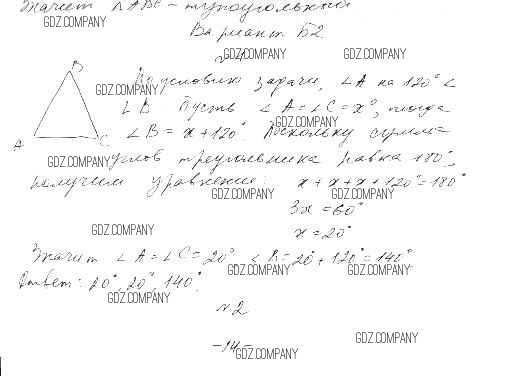 Значит △ABC - тупоугольный
Вариант Б2
№1
B
По условию задачи, ∠A на 120° <
∠B Пусть ∠A = ∠C = x°, тогда
∠B = x + 120° Поскольку сумма
A C
углов треугольника равна 180°,
получим уравнение: x + x + x + 120° = 180°
3x = 60°
x = 20°
Значит ∠A = ∠C = 20° ∠B = 20° + 120° = 140°
Ответ: 20°, 20°, 140°.
№2
-14-
GDZ.COMPANY
GDZ.COMPANY
GDZ.COMPANY
GDZ.COMPANY
GDZ.COMPANY
GDZ.COMPANY
GDZ.COMPANY
GDZ.COMPANY
GDZ.COMPANY
GDZ.COMPANY
GDZ.COMPANY
GDZ.COMPANY
GDZ.COMPANY
GDZ.COMPANY